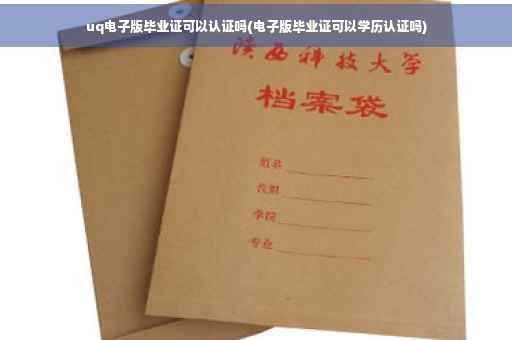 uq电子版毕业证可以认证吗(电子版毕业证可以学历认证吗)
陕西科技大学
档案袋
姓名
学院
专业